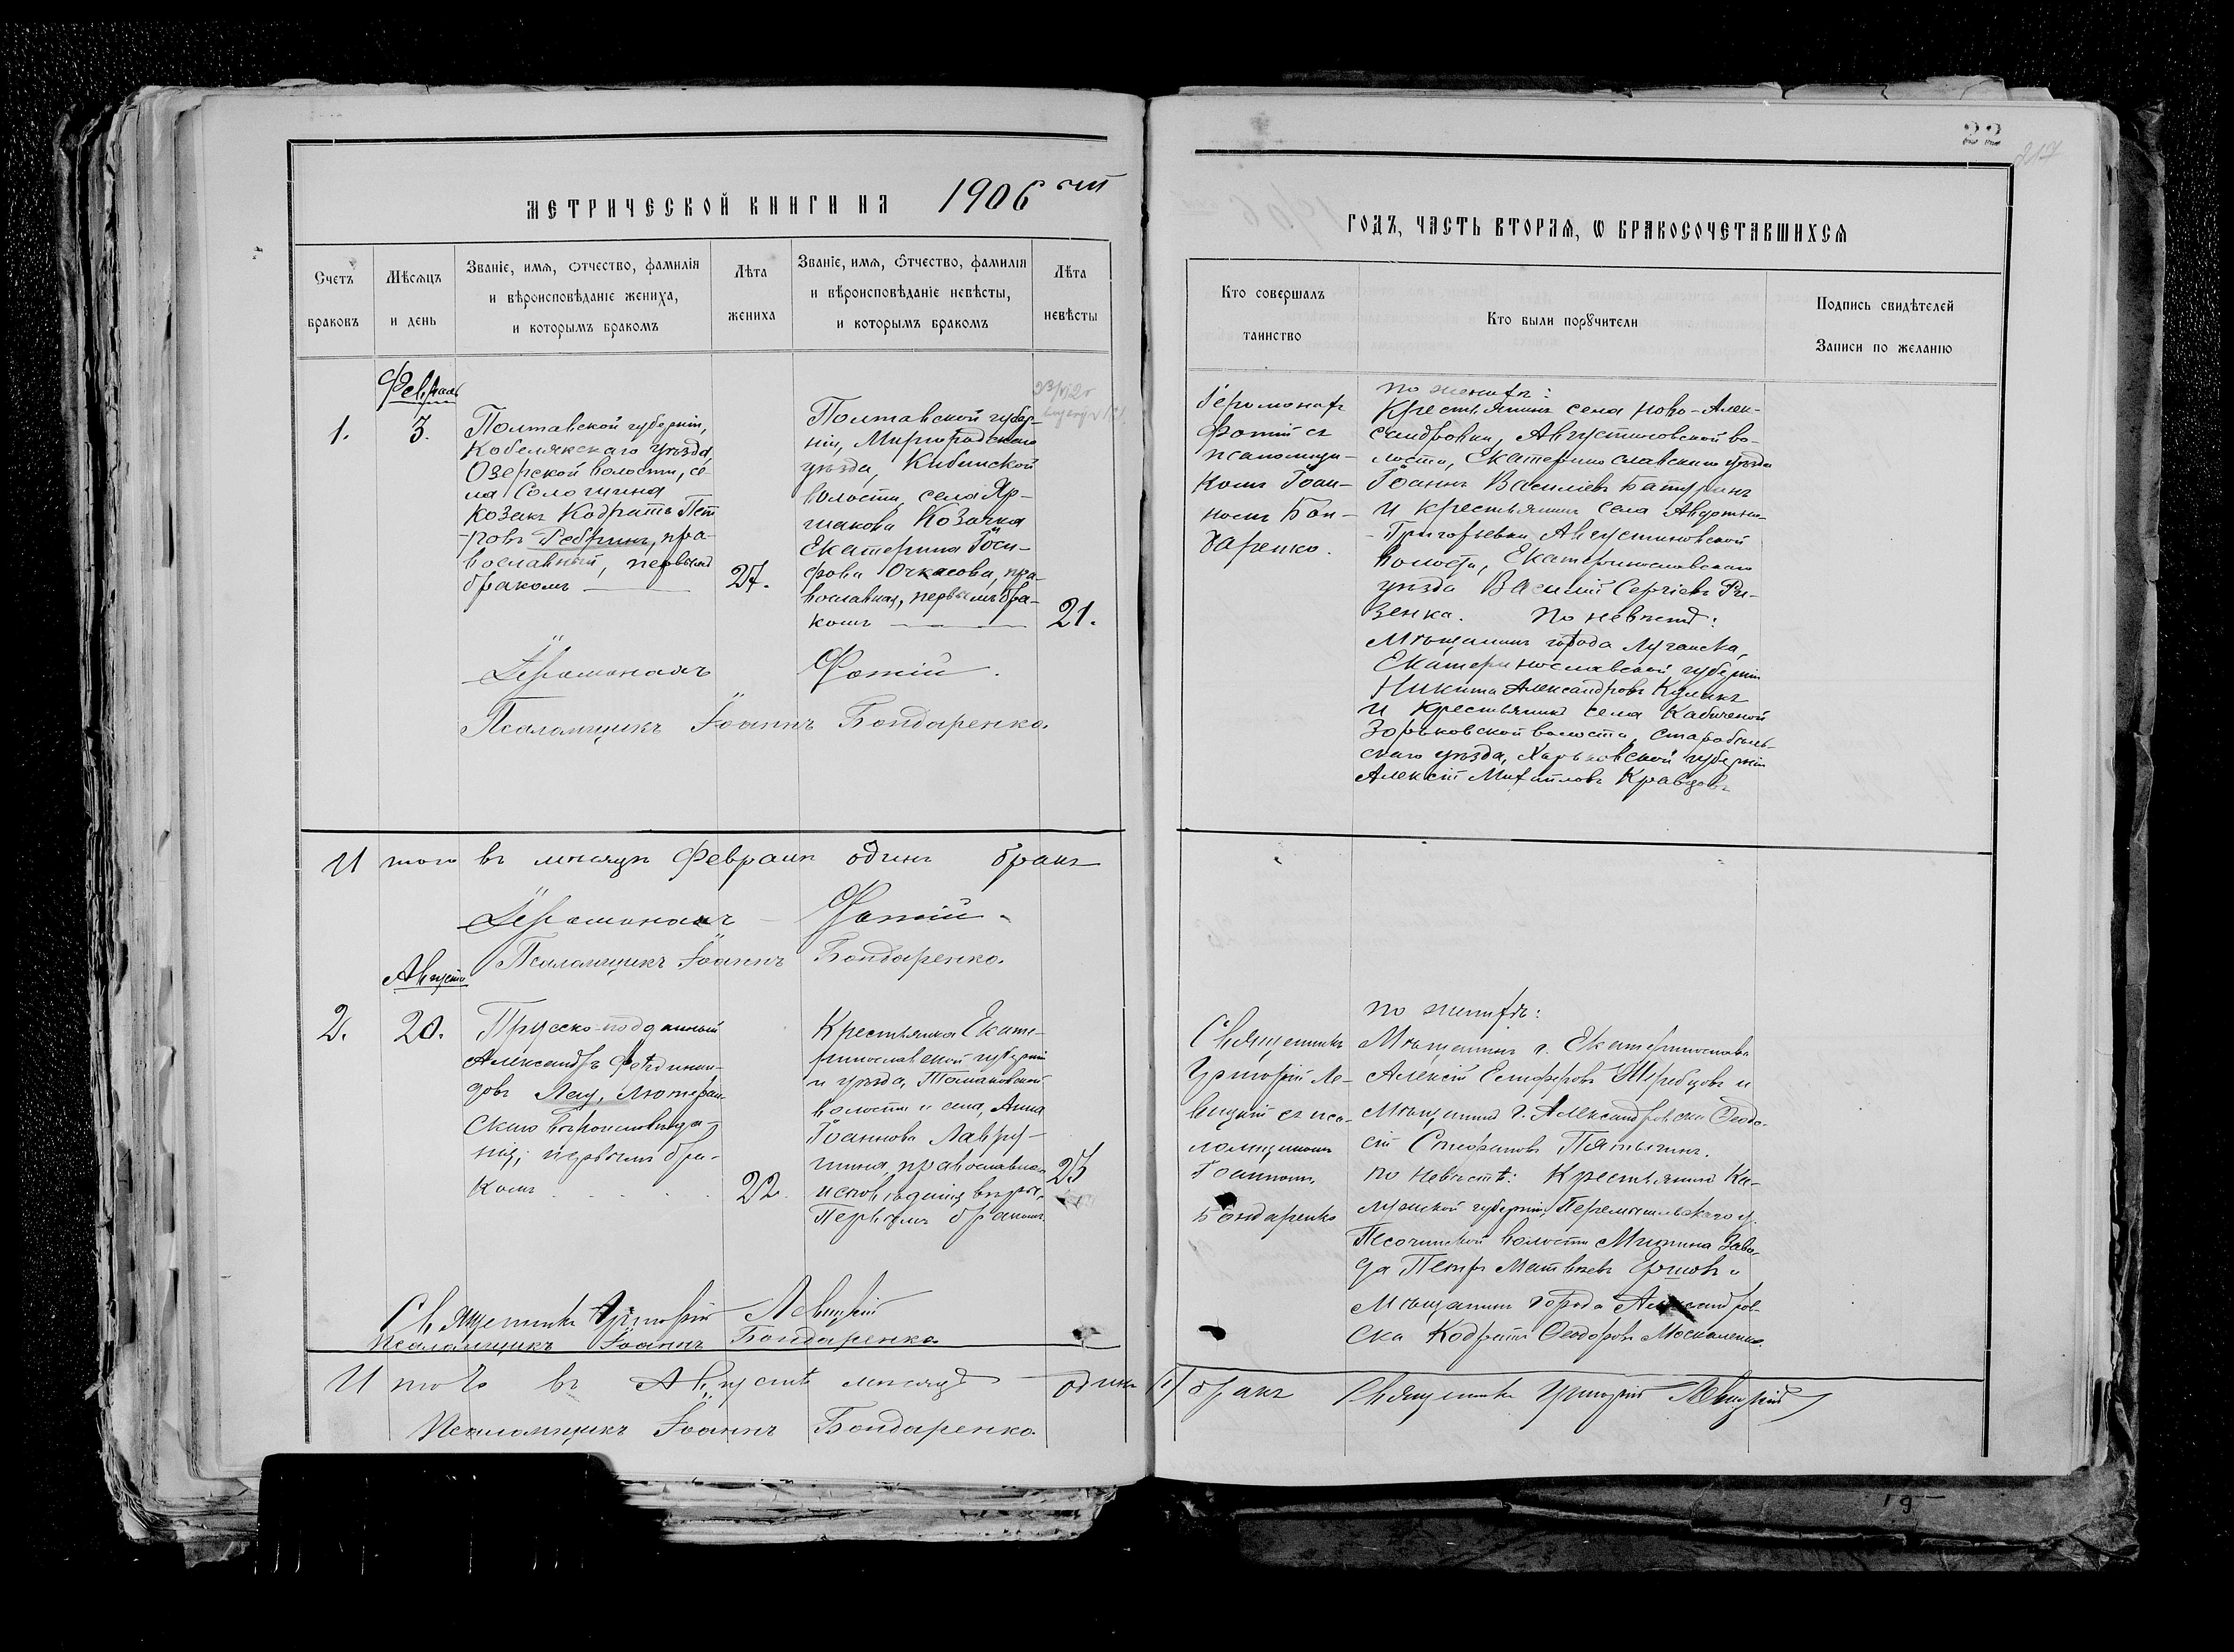 22
217
МЕТРИЧЕСКОЙ КНИГИ НА 1906
ГОДЪ, ЧАСТЬ ВТОРАЯ, Ѡ БРАКОСОЧЕТАВШИХСЯ
Счетъ браковъ
Мѣсяцъ и день
Званіе, имя, отчество, фамилія
и вѣроисповѣданіе жениха,
и которымъ бракомъ
Лѣта жениха
Званіе, имя, отчество, фамилія
и вѣроисповѣданіе невѣсты,
и которымъ бракомъ
Лѣта невѣсты
Кто совершалъ
таинство
Кто были порꙋчители
Подпись свидѣтелей
Записи по желанію
Февраль
1.
3.
Полтавской губерніи,
Кобелякскаго уѣзда,
Озерской волости, се-
ла Сологшина
козакъ Кодратъ Пет
-ровъ Ребринъ, пра-
вославный, первымъ
бракомъ
27.
Полтавской губер-
ніи, Миргородскаго
уѣзда, Кибинской
волости, села Яр-
макова Козачка
Екатерина Іоси-
фова Очкасова, пра-
вославная, первымъ бра-
комъ
21.
Іеромонахъ
Фотій съ
псаломщи-
комъ Іоан-
номъ Бон-
даренко.
по женихѣ:
Крестьянинъ села Ново-Алек-
сандровки, Августиновской во-
лости, Екатеринославскаго уѣзда
Іоаннъ Василіевъ Батуринъ
и крестьянинъ села
-Григорьевки Августиновской
волости, Екатеринославскаго
уѣзда Василій Сергіевъ Ри-
зенка. По невѣстѣ:
Мѣщанинъ города Луганска,
Екатеринославской губерніи
Никита Александровъ Куликъ
и крестьянинъ села Кабычевой
Зориковской волости, Старобѣль-
скаго уѣзда, Харьковской губерніи
Алексій Михаиловъ Кравцовъ
Іеромонахъ Фотій.
Псаломщикъ Іоаннъ Бондаренко.
Итого въ мѣсяцѣ Февралѣ одинъ бракъ
Іеромонахъ Фотій.
Псаломщикъ Іоаннъ Бондаренко.
Августъ
2.
20.
Прусско-подданный
Александръ Фердинан-
довъ Лау, Лютеран-
скаго вѣроисповѣда-
нія; первымъ бра-
комъ
22.
Крестьянка Екате-
ринославской губерніи
и уѣзда, Томаковской
волости и села, Анна
Іоаннова Лавру-
шина, православнаго
исповѣданія
Первымъ бракомъ.
25
Священникъ
Григорій Ле-
вицкій съ пса-
ломщикомъ
Іоанномъ
Бондаренко
по женихѣ:
Мѣщанинъ г. Екатеринослава
Алексій Жеребцовъ и
Мѣщанинъ г. Александровска Ѳеодо-
сій Стефановъ Пятыгинъ.
по невѣстѣ: Крестьянинъ Ка-
лужской губерніи, Перемышльскаго у.
Песочинской волости Мышина Заво-
да Петръ Матвѣевъ Ершовъ и
Мѣщанинъ города Александров-
ска Кодратъ Ѳеодоровъ Москаленко.
Священникъ Григорій Левицкій
Псаломщикъ Іоаннъ Бондаренко
Итого въ Августѣ мѣсяцѣ одинъ (1) бракъ Священникъ Григорій Левицкій
Псаломщикъ Іоаннъ Бондаренко.
19